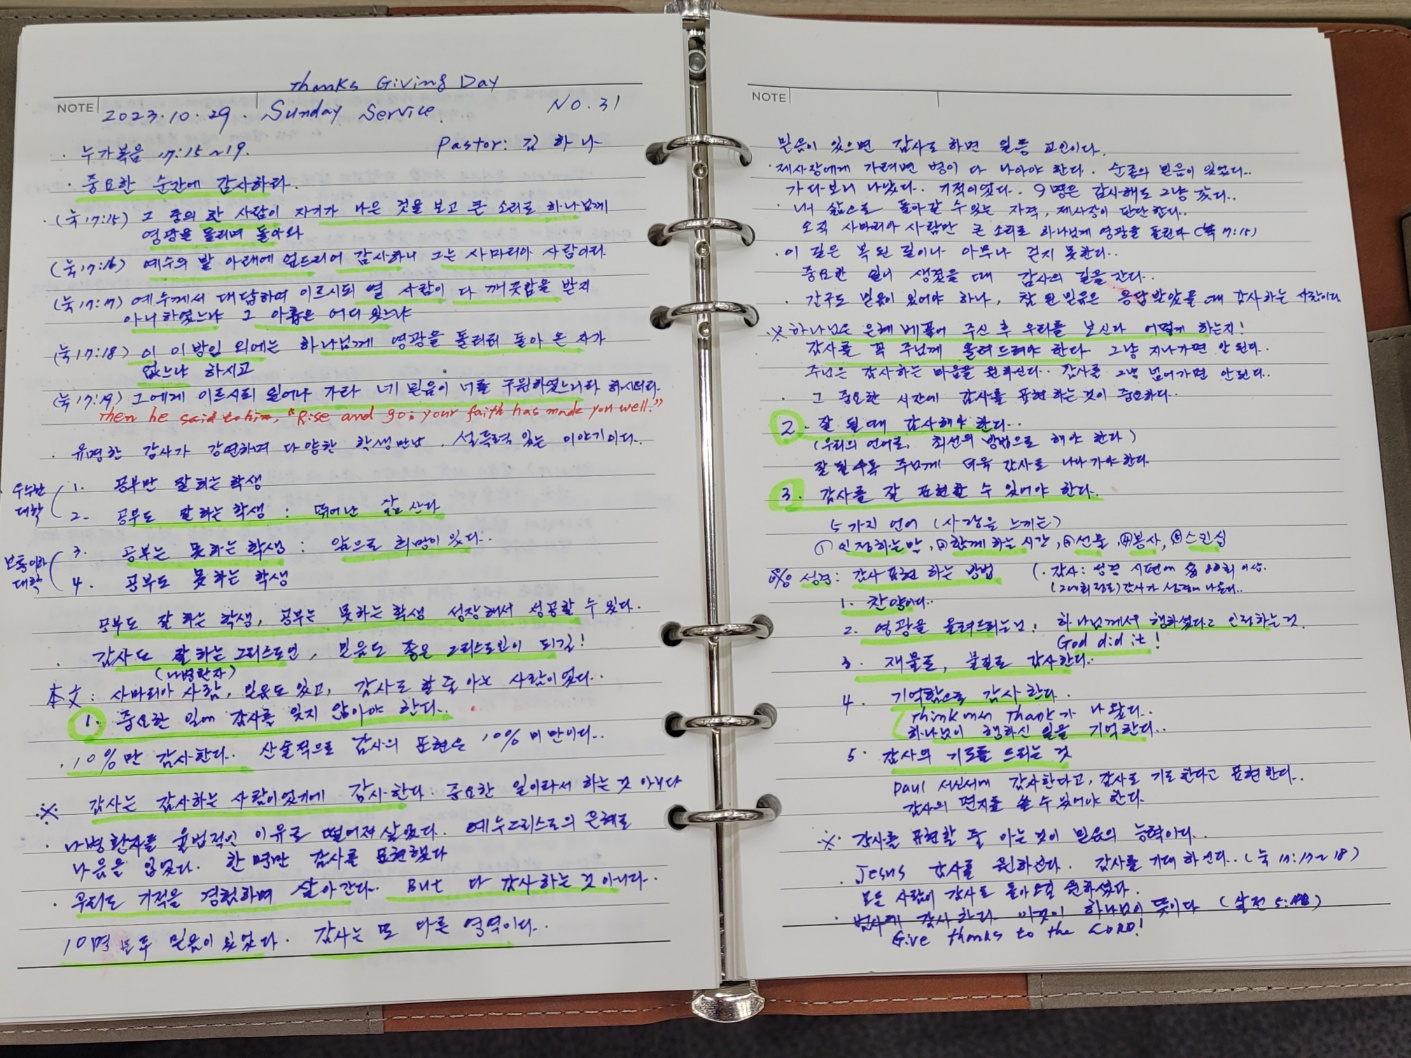 Thanks Giving Day
NOTE 2023.10.29. Sunday Service. NO. 31
· 누가복음 17:15~19. Pastor: 김 하 나
· 중요한 순간에 감사하라.
· (눅17:15) 그 중의 한 사람이 자기가 나은 것을 보고 큰 소리로 하나님께
영광을 돌리며 돌아와
(눅17:16) 예수의 발 아래에 엎드리어 감사하니 그는 사마리아 사람이라
(눅17:17) 예수께서 대답하여 이르시되 열 사람이 다 깨끗함을 받지
아니하였느냐 그 아홉은 어디 있느냐
(눅17:18) 이 이방인 외에는 하나님께 영광을 돌리러 돌아 온 자가
없느냐 하시고
(눅17:19) 그에게 이르시되 일어나 가라 네 믿음이 너를 구원하였느니라 하시더라.
Then he said to him, "Rise and go; your faith has made you well."
· 유명한 강사가 강연하며 다양한 학생만남, 설득력 있는 이야기이다.
우수한 대학 ( 1. 공부만 잘하는 학생
2. 공부도 잘하는 학생 : 뛰어난 삶 산다.
보통이하 대학 ( 3. 공부는 못하는 학생 : 앞으로 희망이 있다..
4. 공부도 못하는 학생
공부도 잘하는 학생, 공부는 못하는 학생 성장해서 성공할 수 있다.
· 감사도 잘하는 그리스도인, 믿음도 좋은 그리스도인이 되길!
(나병환자)
本文: 사마리아 사람, 믿음도 있고, 감사도 할 줄 아는 사람이었다..
1. 중요한 일에 감사를 잊지 않아야 한다..
· 10%만 감사한다.. 산술적으로 감사의 표현은 10% 미만이다..
※ 감사는 감사하는 사람이었기에 감사한다. 중요한 일이라서 하는 것 아니다
· 나병환자들 율법적인 이유로 떨어져 살았다. 예수그리스도의 은혜로
나음을 입었다. 한 명만 감사를 표현했다
· 우리도 기적을 경험하며 살아간다. But 다 감사하는 것 아니다.
10명 모두 믿음이 있었다. 감사는 또 다른 영역이다..
NOTE
믿음이 있으면 감사도 하면 일등 교인이다.
· 제사장에게 가려면 병이 다 나아야 한다. 순종의 믿음이 있었다..
가다보니 나았다. 기적이었다. 9명은 감사해도 그냥 갔다..
· 내 삶으로 돌아갈 수 있는 자격, 제사장이 판단한다..
오직 사마리아 사람만 큰 소리로 하나님께 영광을 돌린다 (눅 17:15)
· 이 길은 복된 길이나 아무나 걷지 못한다..
중요한 일이 생겼을 때 감사의 길을 간다..
· 간구도 믿음이 있어야 하나, 참 된 믿음은 응답받았을 때 감사하는 사람이다
※ 하나님은 은혜 베풀어 주신 후 우리를 보신다 어떻게 하는지!
감사를 꼭 주님께 올려드려야 한다. 그냥 지나가면 안 된다..
주님은 감사하는 마음을 원하신다.. 감사를 그냥 넘어가면 안된다..
· 그 중요한 시간에 감사를 표현하는 것이 중요하다..
2. 잘 될 때 감사해야 한다..
(우리의 언어로, 최선의 방법으로 해야 한다)
잘 될수록 주님께 더욱 감사로 나아가야한다.
3. 감사를 잘 표현할 수 있어야 한다.
5가지 언어 (사랑을 느끼는)
① 인정하는말, ② 함께하는 시간, ③ 선물, ④ 봉사, ⑤ 스킨십
성경: 감사 표현 하는 방법 (· 감사: 성경 시편에
감사가 성경에 나온다..
1. 찬양이다..
2. 영광을 올려드리는것! 하나님께서 행하셨다고 인정하는 것.
God did it!
3. 재물로, 물질로 감사한다..
4. 기억함으로 감사한다.
Think에서 Thank가 나왔다..
하나님이 행하신 일을 기억한다..
5. 감사의 기도를 드리는 것
Paul 서신서에 감사한다고, 감사로 기도한다고 표현한다..
감사의 편지를 쓸 수 있어야 한다.
※ 감사를 표현할 줄 아는 것이 믿음의 능력이다..
· Jesus 감사를 원하신다. 감사를 기대하신다.. (눅 17:17~18)
모든 사람이 감사로 돌아오길 원하셨다.
· 범사에 감사하라 이것이 하나님의 뜻이다 (살전 5:18)
Give thanks to the LORD!